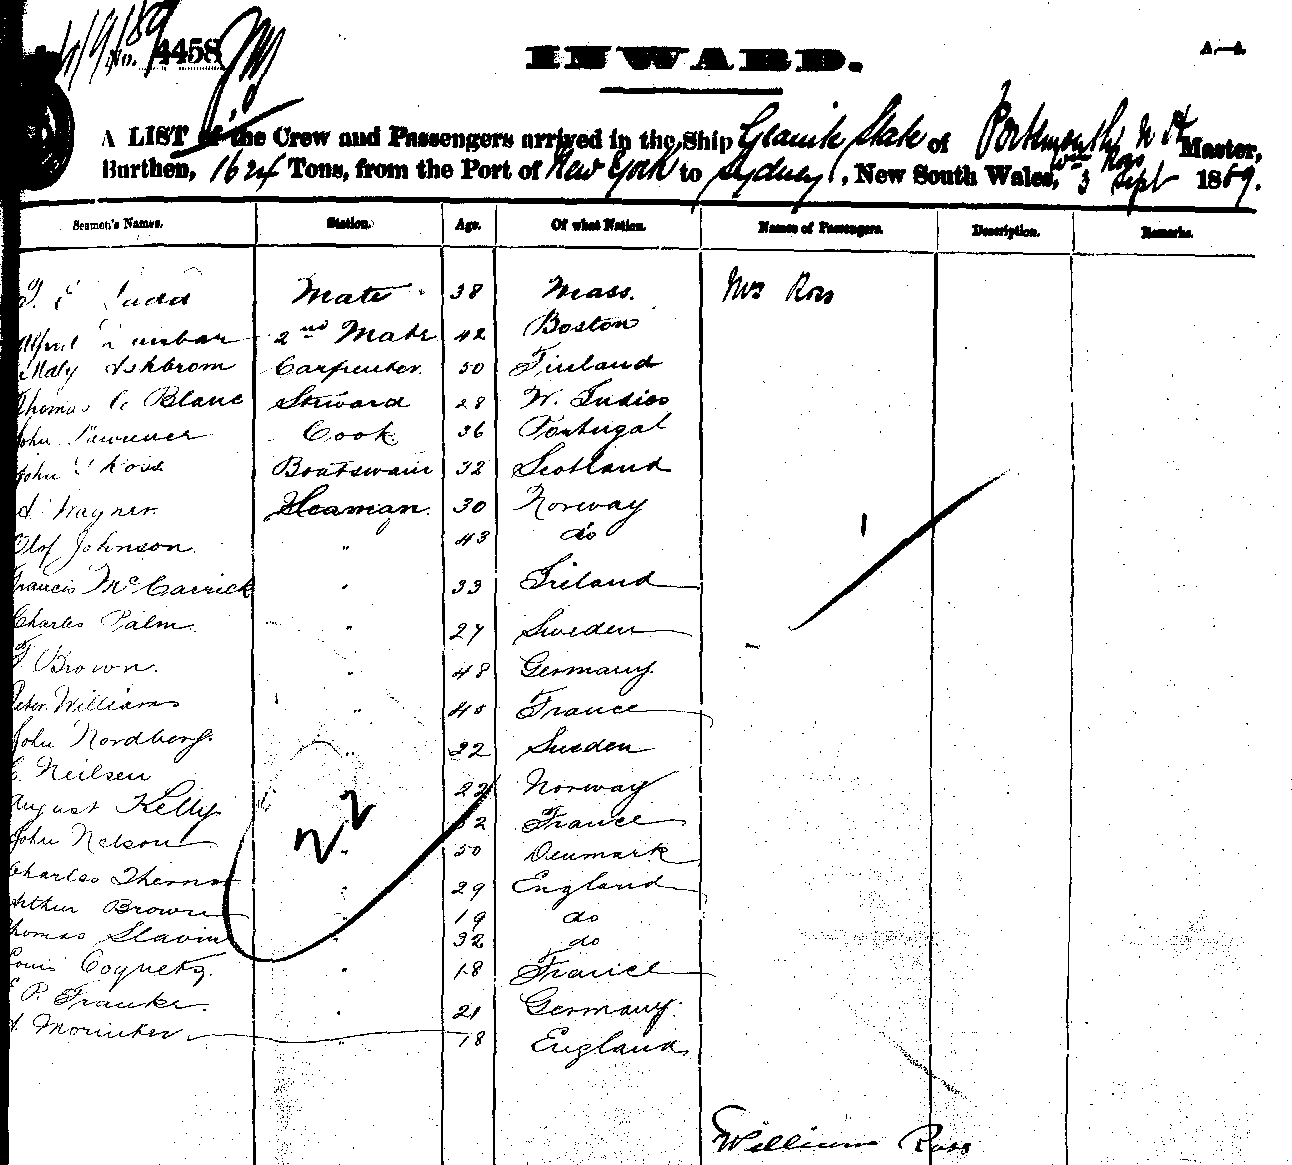 4/9/89
No. 4458
INWARD.
A—A
A LIST of the Crew and Passengers arrived in the Ship Granite State of Portsmouth N H Wm Ross Master,
Burthen, 1624 Tons, from the Port of New York to Sydney, New South Wales, 3 Sept 1889.
Seamen's Names. Station. Age. Of what Nation. Names of Passengers. Description. Remarks.
Mate 38 Mass. Mrs Ross
2nd Mate 42 Boston
Carpenter 50 Finland
Thomas Blanc Steward 28 W. Indies
John Cook 36 Portugal
John Ross Boatswain 32 Scotland
A. Wagner Seaman 30 Norway
Olof Johnson " 43 do
Francis McCarrick " 33 Ireland
Charles Palm " 27 Sweden
F. Brown. " 48 Germany
Peter Williams " 40 France
John Nordberg " 22 Sweden
Neilsen 22 Norway
August Kelly 32 France
22
John Nelson " 50 Denmark
Charles Thomas " 29 England
Arthur Brown " 19 do
Thomas Slavin " 32 do
Louis " 18 France
P. Franke " 21 Germany
" 18 England
William Ross